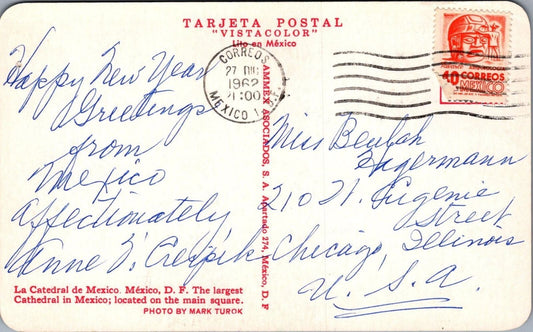 TARJETA POSTAL
"VISTACOLOR"
Lito en México
CORREOS
27 DIC
1962
21:00
MEXICO 1, D.F.
40 CORREOS
MEXICO
Happy New Year
Greetings
from
Mexico
Affectionately
Anne
AMMEX ASOCIADOS, S. A. Apartado 274, México, D. F
Miss Beulah
Hagermann
210 W. Eugenie
Street
Chicago, Illinois
U. S. A.
La Catedral de Mexico. México, D. F. The largest
Cathedral in Mexico; located on the main square.
PHOTO BY MARK TUROK